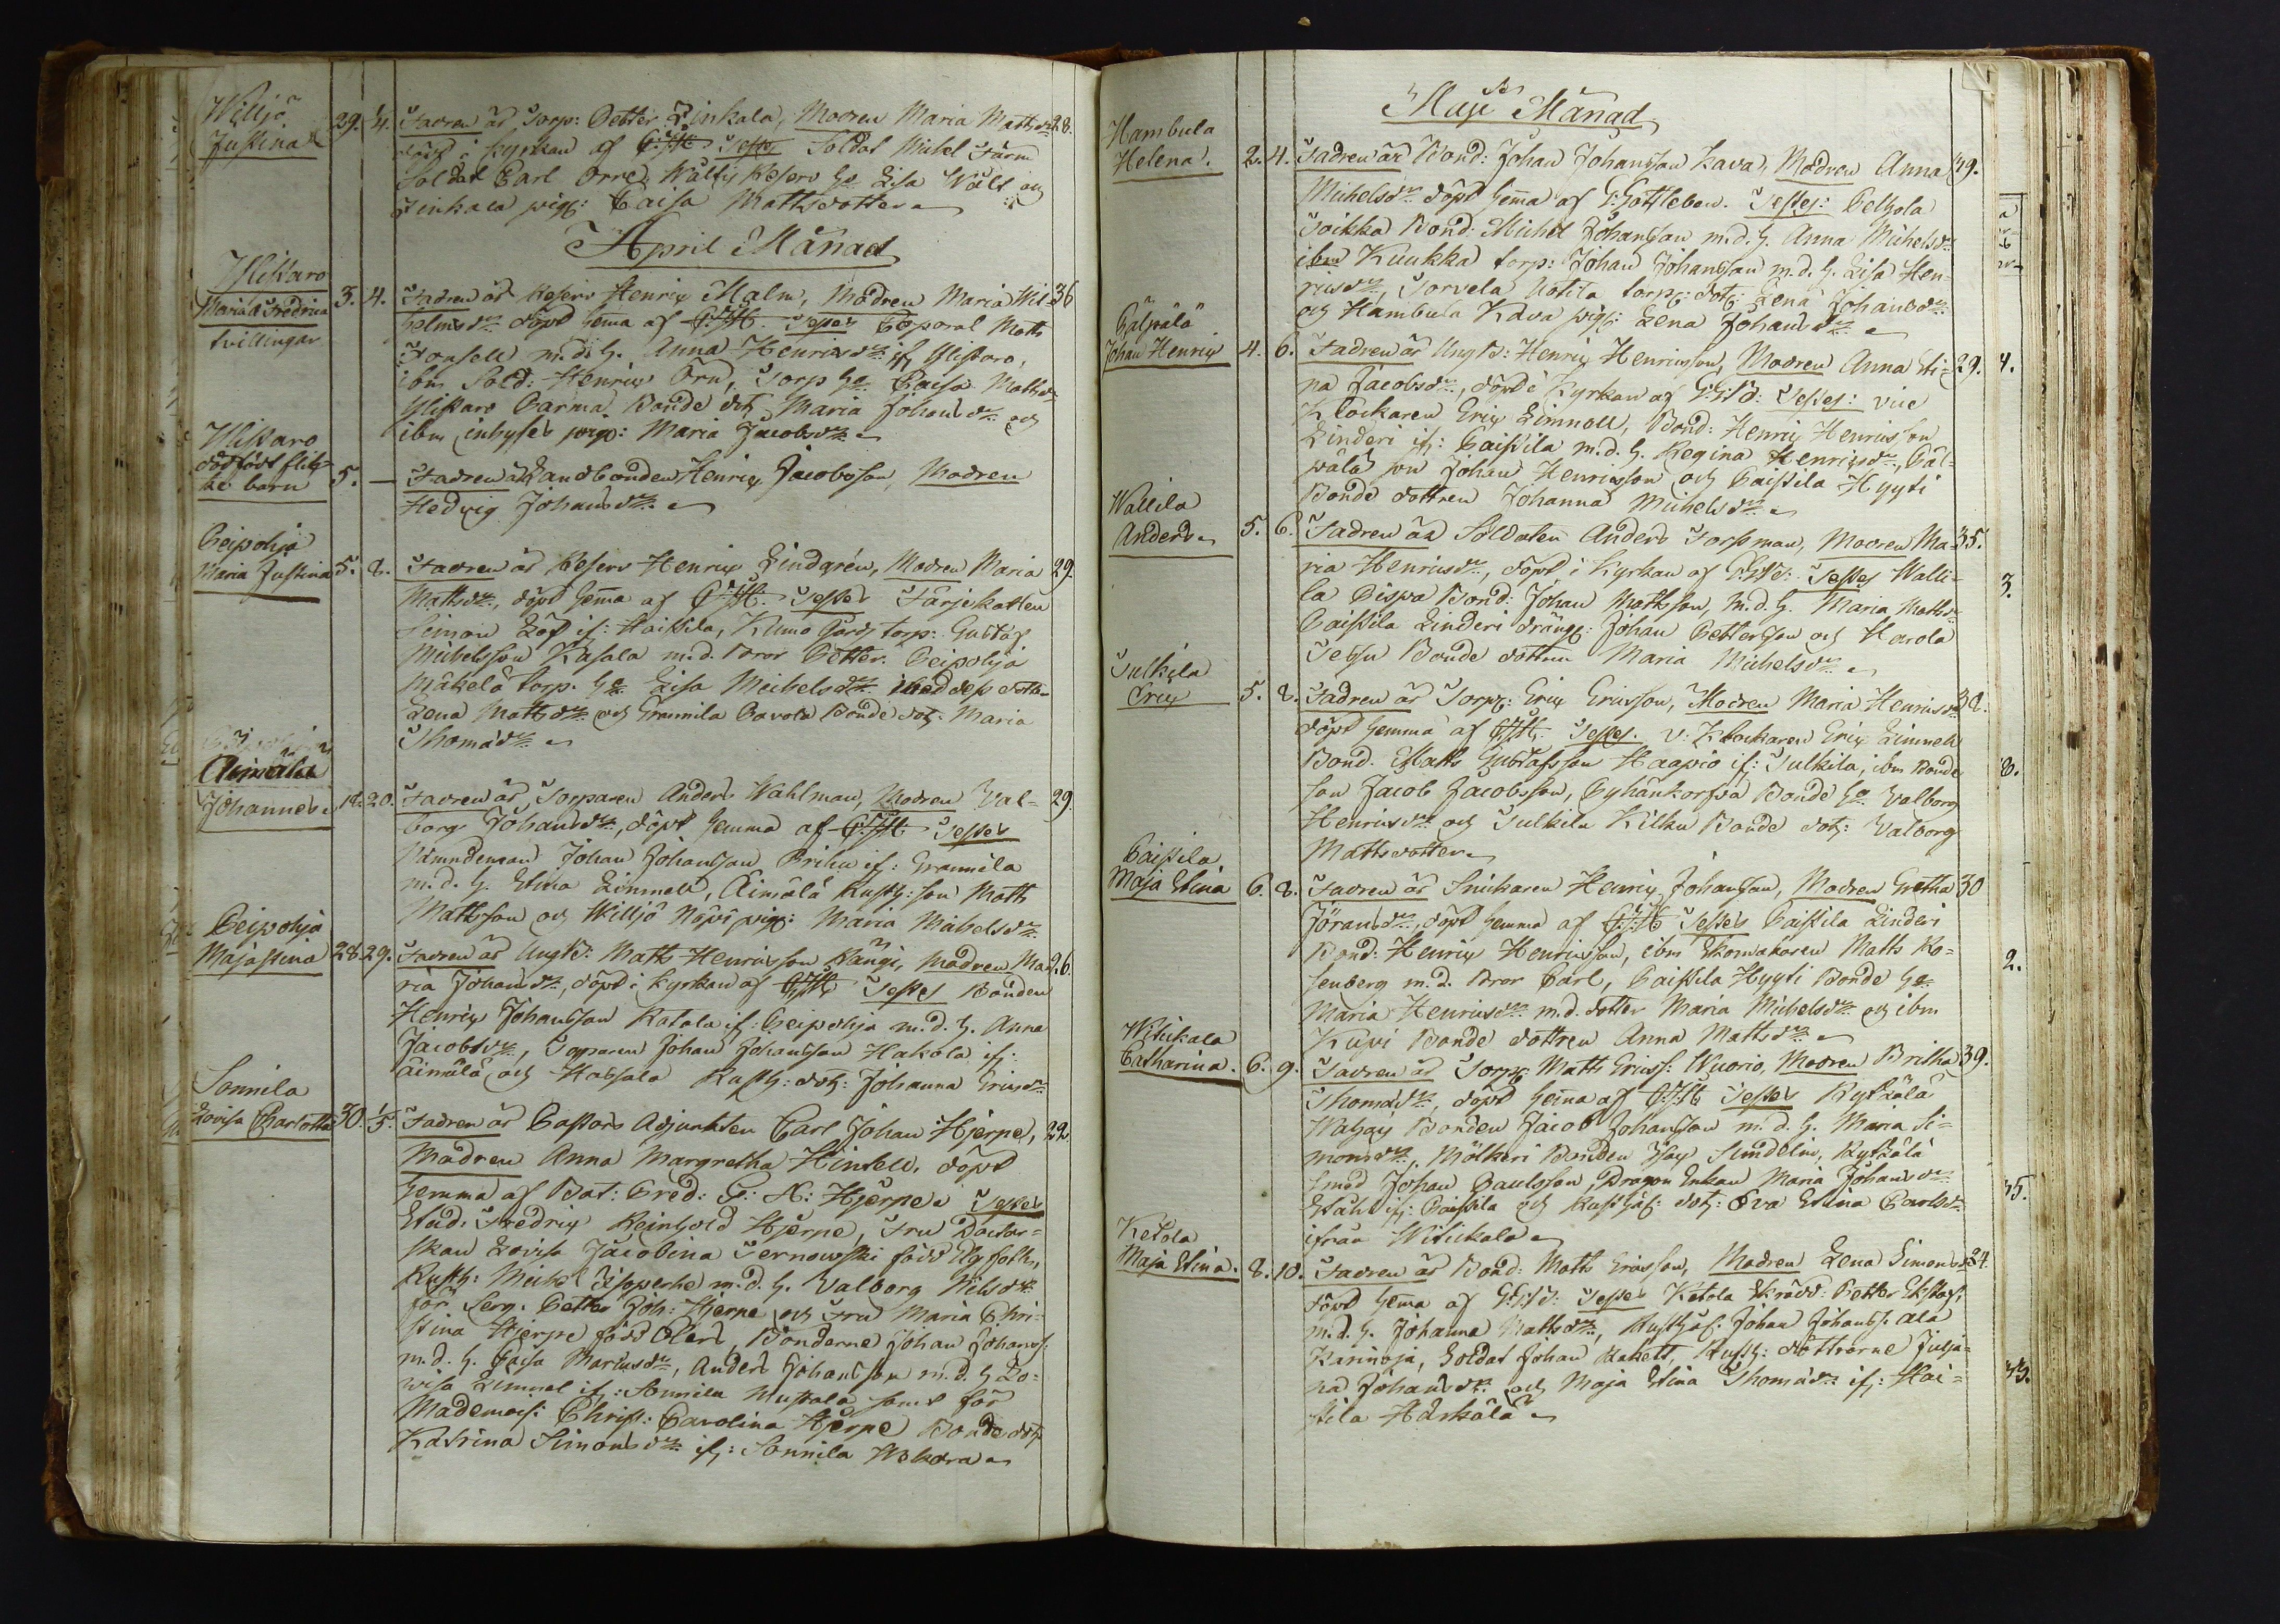 Willjö
Justina
29. 4. Fadren är Torp: Petter Finkala, Modren Maria Mattsdr 28.
döpt i kyrkan af C:J:H: Testes Soldat Michel Färm
Soldat Carl Orre, Wälts Reserv Ho Lisa Wält och
Finkala pig: Caisa Mattsdotter
April Månad
Yliskaro
Maria & Fredrica
tvillingar
3. 4. Fadren är Reserv Henrix Malm, Modren Maria Wil- 36
helmsdr döpt hemma af C:J:H: Testes Corporal Matts
m.d.h. Anna Henricsdr ifr Yliskaro,
ibm Sold: Henrix Örn, Torp Ho Caisa Mattsdr
Yliskaro Parma Bonde dotr Maria Johansdr och
ibm inhyses pigo: Maria Jacobsdr
Yliskaro
dödfödt flick-
ke barn
5. – Fadren är Landbonden Henrix Jacobsson, Modren
Hedvig Johansdr
Peipohja
Maria Justina
5. 8. Fadren är Reserv Henrix Lindgrén, Modren Maria 29.
Mattsdr, döpt hemma af C:J:H: Testes Färjekarlen
Simon Löf if: Haistila, Kumo Gårds torp: Gustaf
Michelsson Kasala m.d. Bror Petter. Peipohja
Mäkelä torp. Ho Lisa Michelsdr med dess dotter
Lena Mattsdr och Grannila Pavola Bonde dotr Maria
Thomadr
Äimälä
Johannes
18. 20. Fadren är Torparen Anders Wahlman, Modren Val- 29.
borg Johansdr, döpt hemma af C:J:H: Testes
Nämndeman Johan Johansson Prihu if: Grannila
m.d.h. Stina Linnell, Äimälä Rusth: son Matts
Mattsson och Willjö Näpö pig: Maria Michelsdr
Peipohja
Majastina
28. 29. Fadren är UngB: Matts Henricsson Rangi, Modren Ma- 26.
ria Johansdr, döpt i kyrkan af C:J:H: Testes Bonden
Henrix Johansson Ratala if: Peipohja m.d.h. Anna
Jacobsdr, Torparen Johan Johansson Hakola if:
Äimälä, och Kassala Rusth: dotr: Johanna Ericsdr
Sonnila
Lovisa Charlotta
30. 1/5. Fadren är Pastors Adjunkten Carl Johan Hjerpe, 22.
Modren Anna Margretha Kinsell, döpt
hemma af Bat: Pred: G: H: Hjerpe. Testes
Stud: Fredrix Reinhold Hjerpe, Fru Doctor-
skan Lovisa Jacobina Ternowski född Elgfoth,
Rusth: Michel Isoperhe m.d.h. Valborg Nilsdr
för Serg. Petter Joh: Hjerpe och Fru Maria Chri-
stina Hjerpe född Polers, Bönderne Johan Johanss:
m.d.h. Caisa Mariusdr, Anders Johansson m.d.h. Lo-
visa Linnel if: Sonnila Mustala samt för
Mademois: Christ: Carolina Hjerpe Bonde dotr
Katrina Simonsdr if: Sonnila Wokora
Maji Månad
Hambula
Helena.
2. 4. Fadren är Bond: Johan Johansson Kava, Modren Anna 39.
Michelsdr döpt hemma af G: Gottleben. Testes: Pelhola
Toikka Bond: Michel Johansson m.d.h. Anna Michelsdr
ibm Kuukka torp: Johan Johansson m.d.h. Lisa Hen-
ricsdr, Torvela Uotila torp: dotr: Lena Johansdr
och Hambula Kava pig: Lena Johansdr
Pälpälä
Johan Henrix
4. 6. Fadren är UngB: Henrix Henricsson, Modren Anna Sti- 29.
na Jacobsdr, döpt i Kyrkan af G:G:B: Testes: vice
Klockaren Erix Linnell, Bond: Henrix Henricsson
Linderi if: Paistila m.d.h. Regina Henricsdr, Päl-
pälä son Johan Henricsson och Paistila Hyyti
Bonde dottren Johanna Michelsdr
Wallila
Anders
5. 6. Fadren är Soldaten Anders Forssman, Modren Ma- 35.
ria Henricsdr, döpt i Kyrkan af Testes Walli-
la Pispa Bond: Johan Mattsson, m.d.h. Maria Mattsdr
Paistila Linderi dräng: Johan Pettersson och Harola
Bonde dottren Maria Michelsdr
Tulkila
Erix
5. 8. Fadren är Torp: Erix Ericsson, Modren Maria Henricsdr 38.
döpt hemma af C:J:H: Testes. v: Klockaren Erix Linnell
Bond. Matts Gustafsson Haapio if: Tulkila, ibm Bonde
son Jacob Jacobsson, Pyhänkorfva Bonde Ho Valborg
Henricsdr och Tulkila Kilku Bonde dotr: Valborg
Mattsdotter
Paistila
Maja Stina
6. 8. Fadren är Snickaren Henrix Johansson, Modren Gretha 30
Göransdr, döpt hemma af C:J:H: Testes Paistila Linderi
Bond: Henrix Henricsson, ibm Skomakaren Matts Ro-
senberg m.d. Bror Carl, Paistila Hyyti Bonde Ho
Maria Henricsdr m.d. dotter Maria Michelsdr och ibm
Kupi Bonde dottren Anna Mattsdr
Witikala
Catharina.
6. 9. Fadren är Torp: Matts Ericss: Wuorio, Modren Britha 39.
Thomadr, döpt hemma af C:J:H: Testes Kytkälä
Bonden Jacob Johansson m.d.h. Maria Si-
monsdr, Mälkeri Bonden Isax Sundelin, Kytkälä
Smed Johan Paulsson, Dragon Enkan Maria Johansdr
Ståhl if: Paistila och Rusthåf: dotr: Eva Stina Carlsdr
ifrån Witickala
Ketola
Maja Stina.
8. 10. Fadren är Bond: Matts Ericsson, Modren Lena Simonsdr 34.
döpt hemma af Testes Ketola Skrädd: Petter
m.d.h. Johanna Mattsdr, Rusthåf: Johan Johanss: Ala
Karinoja, Soldat Johan Rakett, Rusth: döttrarne Julja-
na Johansdr och Maja Stina Thomadr if: Hai-
stila Härkälä